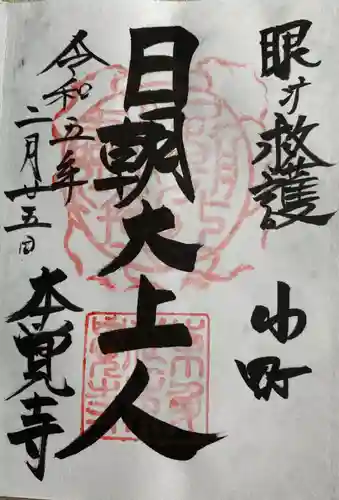 眼病救護
小町
日朝大上人
令和五年
二月廿五日
本覚寺